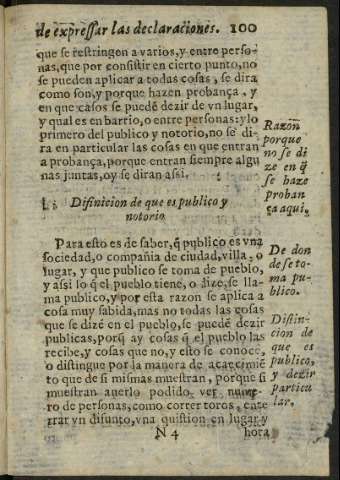 de expressar las declaraciones. 100
que se restringen a varios, y entre perso-
nas, que por consistir en cierto punto, no
se pueden aplicar a todas cosas, se dira
como son, y porque hazen probança, y
en que casos se puedẽ dezir de vn lugar,
y qual es en barrio, o entre personas: y lo
primero del publico y notorio, no se di-
ra en particular las cosas en que entran
a probança, porque entran siempre algu
nas juntas, oy se diran assi.
Razõn
porque
no se di
ze en q̃
se haze
proban
ça aqui.
Difinicion de que es publico y
notorio
Para esto es de saber, q̃ publico es vna
sociedad, o compañia de ciudad, villa, o
lugar, y que publico se toma de pueblo,
y assi lo q̃ el pueblo tiene, o dize, se lla-
ma publico, y por esta razon se aplica a
cosa muy sabida, mas no todas las cosas
que se dizẽ en el pueblo, se puedẽ dezir
publicas, porq̃ ay cosas q̃ el pueblo las
recibe, y cosas que no, y esto se conoce,
o distingue por la manera de acaecimiẽ
to que de si mismas muestran, porque si
muestran auerlo podido ver nume-
ro de personas, como correr toros, ente
rrar vn difunto, vna quistion en lugar y
De don
de se to-
ma pu-
blico.
Distin-
cion de
que es
publico,
y dezir
particu
lar.
N 4
hora